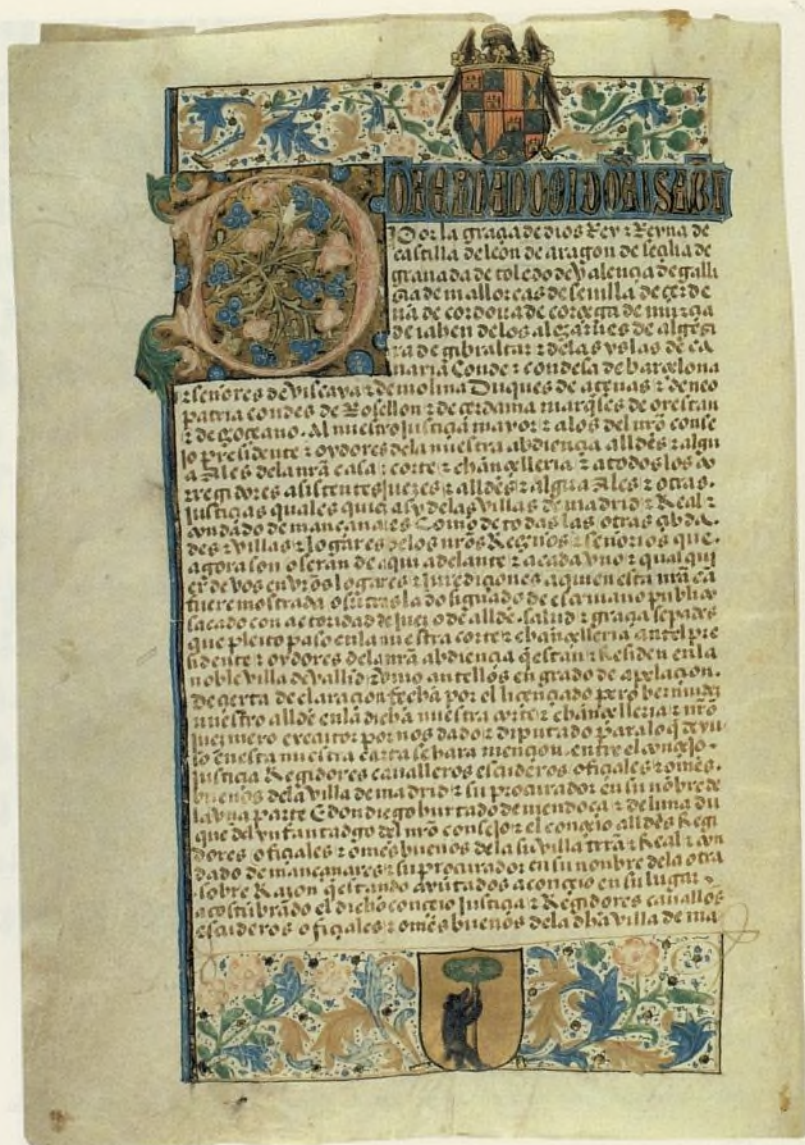 DON FERNANDO E DOÑA ISABEL
Por la graçia de dios Rey ⁊ Reyna de
castilla de leon de aragon de seçilia de
granada de toledo de valençia de galli
zia de mallorcas de seuilla de çerde
ña de cordoua de corçega de murçia
de iahen de los algarues de algezi
ra de gibraltar ⁊ delas yslas de ca
naria Conde ⁊ condesa de barçelona
⁊ señores de viscaya ⁊ de molina Duques de atenas ⁊ de neo
patria condes de Rosellon ⁊ de çerdania marq̃ses de oristan
⁊ de goçeano. Al nuestro justiçia mayor ⁊ alos del nr̃o conse
jo presidente ⁊ oydores dela nuestra abdiençia alld̃es ⁊ algu
aziles dela nr̃a casa ⁊ corte ⁊ chançelleria ⁊ a todos los co
rregidores asistentes juezes ⁊ alld̃es ⁊ alguaziles ⁊ otras.
justiçias quales quier asy delas villas de madrid ⁊ Real ⁊
condado de mançanares Como de todas las otras çibda.
des ⁊ villas ⁊ logares delos nr̃os Reynos ⁊ señorios que.
agora son o seran de aqui adelante ⁊ a cada vno ⁊ qualqui
er de vos en vr̃os logares ⁊ juridiçiones a quien esta nr̃a ca
fuere mostrada o su traslado signado de escriuano publico
sacado con actoridad de juez o de allde. salud ⁊ graçia sepades
que pleito paso en la nuestra corte ⁊ chançelleria antel pre
sidente ⁊ oydores dela nr̃a abdiençia q̃ estan ⁊ Residen en la
noble villa de vallid̃ ⁊ vino antellos en grado de apelaçion.
de çierta declaraçion fecha por el liçençiado pero
nuestro allde en la dicha nuestra corte ⁊ chançelleria ⁊ nr̃o
juez mero executor por nos dado ⁊ diputado para lo q̃ de yu
so en esta nuestra carta se hara mençion. entre el conçejo.
justiçia Regidores caualleros escuderos ofiçiales ⁊ omes.
buenos dela villa de madrid ⁊ su procurador en su nõbre de
la vna parte E don diego hurtado de mendoça ⁊ de luna du
que del ynfantadgo del nr̃o consejo ⁊ el conçejo alld̃es Regi
dores ofiçiales ⁊ omes buenos de la su villa trr̃a ⁊ Real ⁊ con
dado de mançanares ⁊ su procurador en su nonbre dela otra
sobre Razon q̃ estando ayũtados a conçejo en su lugar
acostũbrado el dicho conçejo justiçia ⁊ Regidores cauallos
escuderos ofiçiales ⁊ omes buenos dela dha villa de ma